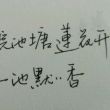 池塘蓮花开
一池默默香